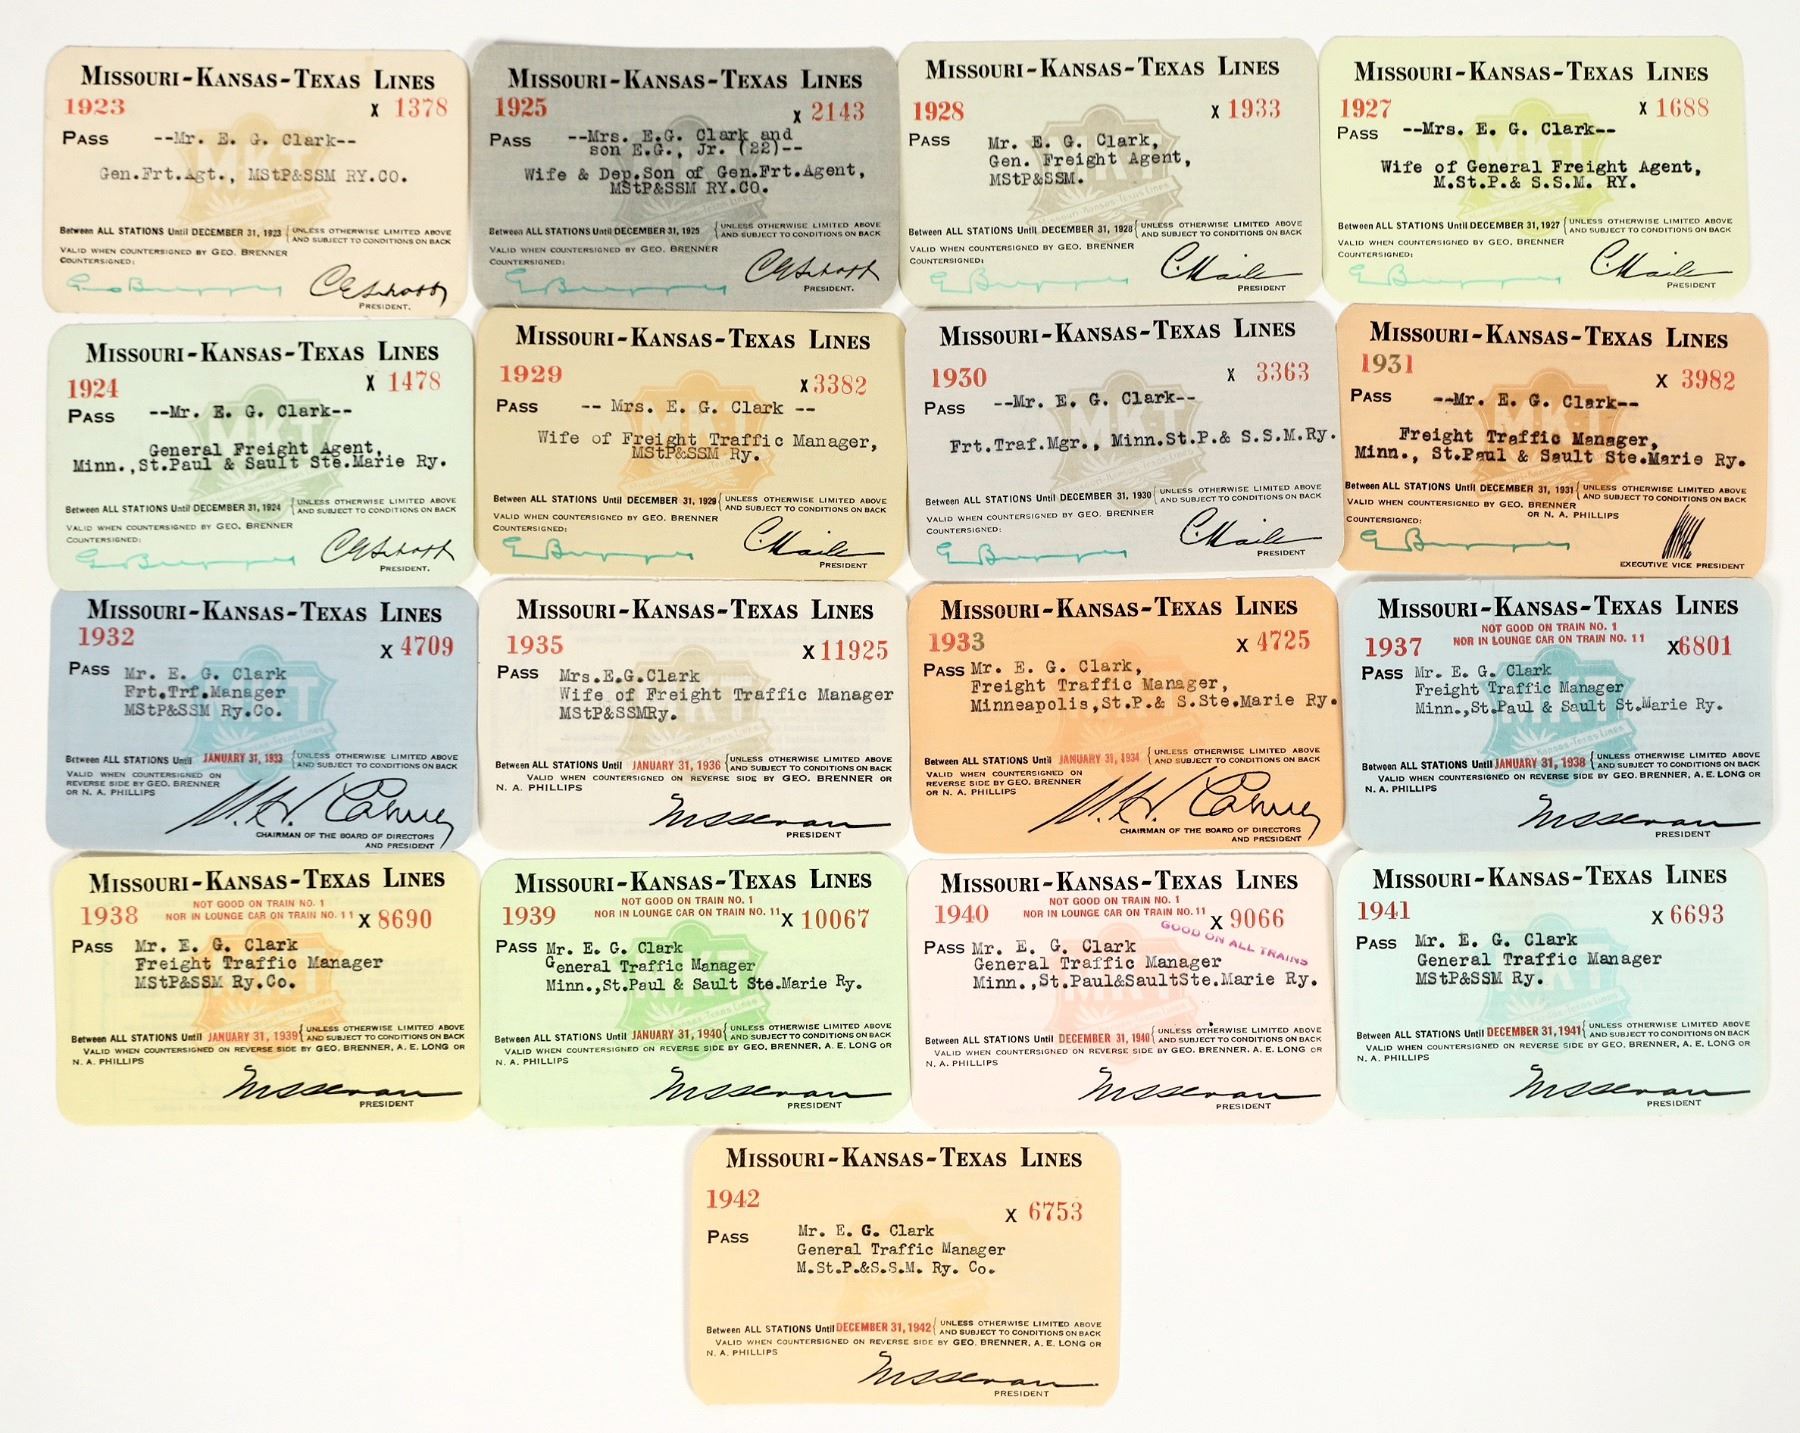 MISSOURI-KANSAS-TEXAS LINES
1923 X 1378
PASS --Mr. E. G. Clark--
Gen.Frt.Agt., MStP&SSM RY.CO.
Between ALL STATIONS Until DECEMBER 31, 1923 { UNLESS OTHERWISE LIMITED ABOVE
AND SUBJECT TO CONDITIONS ON BACK
VALID WHEN COUNTERSIGNED BY GEO. BRENNER
COUNTERSIGNED:
PRESIDENT.
MISSOURI-KANSAS-TEXAS LINES
1925 X 2143
PASS --Mrs. E.G. Clark and
son E.G., Jr. (22)--
Wife & Dep.Son of Gen.Frt.Agent,
MStP&SSM RY.CO.
Between ALL STATIONS Until DECEMBER 31, 1925 { UNLESS OTHERWISE LIMITED ABOVE
AND SUBJECT TO CONDITIONS ON BACK
VALID WHEN COUNTERSIGNED BY GEO. BRENNER
COUNTERSIGNED:
PRESIDENT.
MISSOURI-KANSAS-TEXAS LINES
1928 X 1933
PASS Mr. E. G. Clark,
Gen. Freight Agent,
MStP&SSM.
Between ALL STATIONS Until DECEMBER 31, 1928 { UNLESS OTHERWISE LIMITED ABOVE
AND SUBJECT TO CONDITIONS ON BACK
VALID WHEN COUNTERSIGNED BY GEO. BRENNER
COUNTERSIGNED:
PRESIDENT
MISSOURI-KANSAS-TEXAS LINES
1927 X 1688
PASS --Mrs. E. G. Clark--
Wife of General Freight Agent,
M.St.P.& S.S.M. RY.
Between ALL STATIONS Until DECEMBER 31, 1927 { UNLESS OTHERWISE LIMITED ABOVE
AND SUBJECT TO CONDITIONS ON BACK
VALID WHEN COUNTERSIGNED BY GEO. BRENNER
COUNTERSIGNED:
PRESIDENT
MISSOURI-KANSAS-TEXAS LINES
1924 X 1478
PASS --Mr. E. G. Clark--
General Freight Agent,
Minn.,St.Paul & Sault Ste.Marie Ry.
Between ALL STATIONS Until DECEMBER 31, 1924 { UNLESS OTHERWISE LIMITED ABOVE
AND SUBJECT TO CONDITIONS ON BACK
VALID WHEN COUNTERSIGNED BY GEO. BRENNER
COUNTERSIGNED:
PRESIDENT.
MISSOURI-KANSAS-TEXAS LINES
1929 X 3382
PASS -- Mrs. E. G. Clark --
Wife of Freight Traffic Manager,
MStP&SSM Ry.
Between ALL STATIONS Until DECEMBER 31, 1929 { UNLESS OTHERWISE LIMITED ABOVE
AND SUBJECT TO CONDITIONS ON BACK
VALID WHEN COUNTERSIGNED BY GEO. BRENNER
COUNTERSIGNED:
PRESIDENT
MISSOURI-KANSAS-TEXAS LINES
1930 X 3363
PASS --Mr. E. G. Clark--
Frt.Traf.Mgr., Minn.St.P.& S.S.M.Ry.
Between ALL STATIONS Until DECEMBER 31, 1930 { UNLESS OTHERWISE LIMITED ABOVE
AND SUBJECT TO CONDITIONS ON BACK
VALID WHEN COUNTERSIGNED BY GEO. BRENNER
COUNTERSIGNED:
PRESIDENT
MISSOURI-KANSAS-TEXAS LINES
1931 X 3982
PASS --Mr. E. G. Clark--
Freight Traffic Manager,
Minn., St.Paul & Sault Ste.Marie Ry.
Between ALL STATIONS Until DECEMBER 31, 1931 { UNLESS OTHERWISE LIMITED ABOVE
AND SUBJECT TO CONDITIONS ON BACK
VALID WHEN COUNTERSIGNED BY GEO. BRENNER
OR N. A. PHILLIPS
COUNTERSIGNED:
EXECUTIVE VICE PRESIDENT
MISSOURI-KANSAS-TEXAS LINES
1932 X 4709
PASS Mr. E. G. Clark
Frt.Trf.Manager
MStP&SSM Ry.Co.
Between ALL STATIONS Until JANUARY 31, 1933 { UNLESS OTHERWISE LIMITED ABOVE
AND SUBJECT TO CONDITIONS ON BACK
VALID WHEN COUNTERSIGNED ON
REVERSE SIDE BY GEO. BRENNER
OR N. A. PHILLIPS
CHAIRMAN OF THE BOARD OF DIRECTORS
AND PRESIDENT
MISSOURI-KANSAS-TEXAS LINES
1935 X 11925
PASS Mrs.E.G.Clark
Wife of Freight Traffic Manager
MStP&SSMRy.
Between ALL STATIONS Until JANUARY 31, 1936 { UNLESS OTHERWISE LIMITED ABOVE
AND SUBJECT TO CONDITIONS ON BACK
VALID WHEN COUNTERSIGNED ON REVERSE SIDE BY GEO. BRENNER OR
N. A. PHILLIPS
PRESIDENT
MISSOURI-KANSAS-TEXAS LINES
1933 X 4725
PASS Mr. E. G. Clark,
Freight Traffic Manager,
Minneapolis,St.P.& S.Ste.Marie Ry.
Between ALL STATIONS Until JANUARY 31, 1934 { UNLESS OTHERWISE LIMITED ABOVE
AND SUBJECT TO CONDITIONS ON BACK
VALID WHEN COUNTERSIGNED ON
REVERSE SIDE BY GEO. BRENNER
OR N. A. PHILLIPS
CHAIRMAN OF THE BOARD OF DIRECTORS
AND PRESIDENT
MISSOURI-KANSAS-TEXAS LINES
NOT GOOD ON TRAIN NO. 1
NOR IN LOUNGE CAR ON TRAIN NO. 11
1937 X6801
PASS Mr. E. G. Clark
Freight Traffic Manager
Minn.,St.Paul & Sault St.Marie Ry.
Between ALL STATIONS Until JANUARY 31, 1938 { UNLESS OTHERWISE LIMITED ABOVE
AND SUBJECT TO CONDITIONS ON BACK
VALID WHEN COUNTERSIGNED ON REVERSE SIDE BY GEO. BRENNER, A. E. LONG OR
N. A. PHILLIPS
PRESIDENT
MISSOURI-KANSAS-TEXAS LINES
NOT GOOD ON TRAIN NO. 1
NOR IN LOUNGE CAR ON TRAIN NO. 11
1938 X 8690
PASS Mr. E. G. Clark
Freight Traffic Manager
MStP&SSM Ry.Co.
Between ALL STATIONS Until JANUARY 31, 1939 { UNLESS OTHERWISE LIMITED ABOVE
AND SUBJECT TO CONDITIONS ON BACK
VALID WHEN COUNTERSIGNED ON REVERSE SIDE BY GEO. BRENNER, A. E. LONG OR
N. A. PHILLIPS
PRESIDENT
MISSOURI-KANSAS-TEXAS LINES
NOT GOOD ON TRAIN NO. 1
NOR IN LOUNGE CAR ON TRAIN NO. 11
1939 X 10067
PASS Mr. E. G. Clark
General Traffic Manager
Minn.,St.Paul & Sault Ste.Marie Ry.
Between ALL STATIONS Until JANUARY 31, 1940 { UNLESS OTHERWISE LIMITED ABOVE
AND SUBJECT TO CONDITIONS ON BACK
VALID WHEN COUNTERSIGNED ON REVERSE SIDE BY GEO. BRENNER, A. E. LONG OR
N. A. PHILLIPS
PRESIDENT
MISSOURI-KANSAS-TEXAS LINES
NOT GOOD ON TRAIN NO. 1
NOR IN LOUNGE CAR ON TRAIN NO. 11
1940 X 9066
GOOD ON ALL TRAINS
PASS Mr. E. G. Clark
General Traffic Manager
Minn.,St.Paul&SaultSte.Marie Ry.
Between ALL STATIONS Until DECEMBER 31, 1940 { UNLESS OTHERWISE LIMITED ABOVE
AND SUBJECT TO CONDITIONS ON BACK
VALID WHEN COUNTERSIGNED ON REVERSE SIDE BY GEO. BRENNER, A. E. LONG OR
N. A. PHILLIPS
PRESIDENT
MISSOURI-KANSAS-TEXAS LINES
1941 X 6693
PASS Mr. E. G. Clark
General Traffic Manager
MStP&SSM Ry.
Between ALL STATIONS Until DECEMBER 31, 1941 { UNLESS OTHERWISE LIMITED ABOVE
AND SUBJECT TO CONDITIONS ON BACK
VALID WHEN COUNTERSIGNED ON REVERSE SIDE BY GEO. BRENNER, A. E. LONG OR
N. A. PHILLIPS
PRESIDENT
MISSOURI-KANSAS-TEXAS LINES
1942 X 6753
PASS Mr. E. G. Clark
General Traffic Manager
M.St.P.&S.S.M. Ry. Co.
Between ALL STATIONS Until DECEMBER 31, 1942 { UNLESS OTHERWISE LIMITED ABOVE
AND SUBJECT TO CONDITIONS ON BACK
VALID WHEN COUNTERSIGNED ON REVERSE SIDE BY GEO. BRENNER, A. E. LONG OR
N. A. PHILLIPS
PRESIDENT